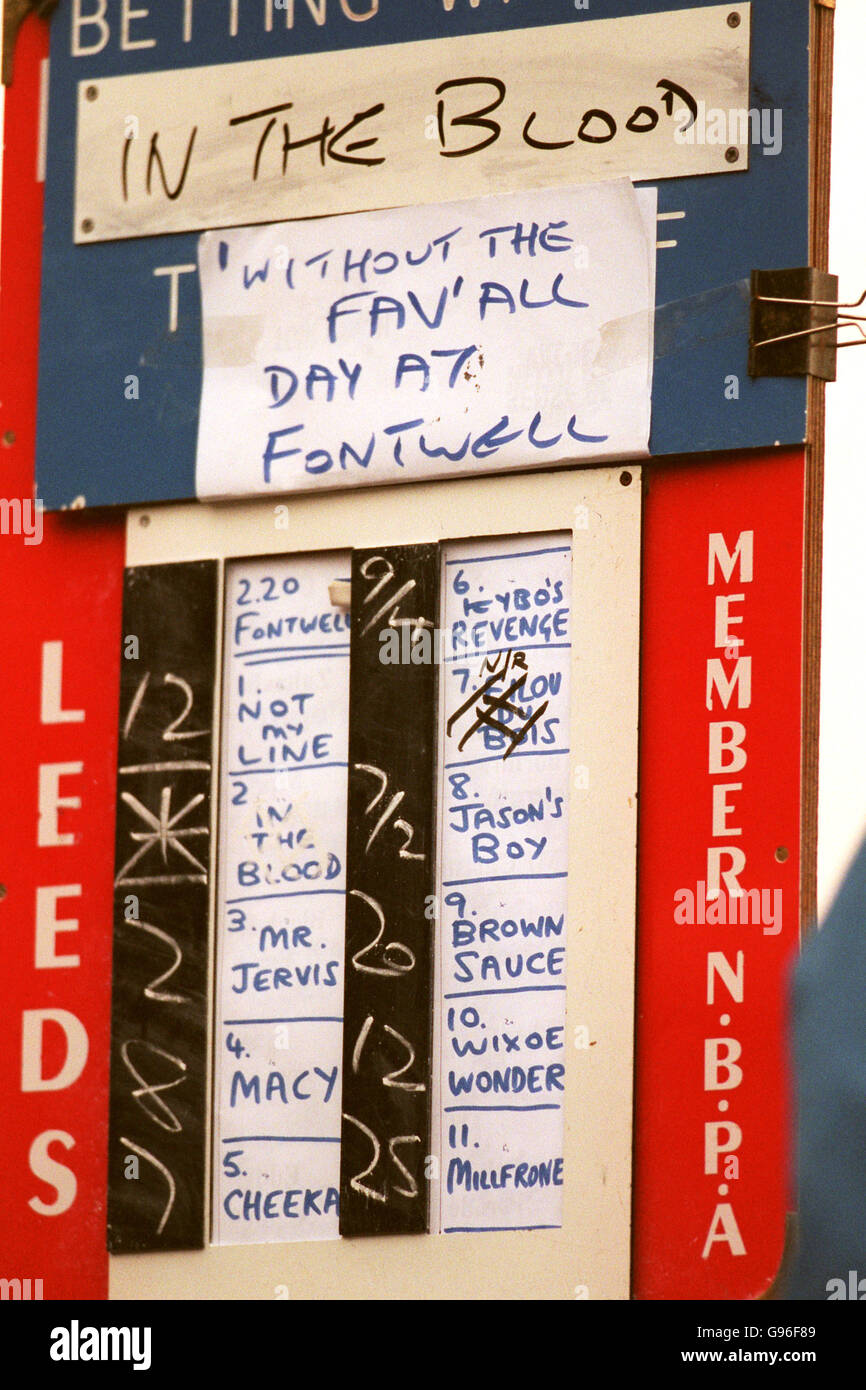 BETTING WI
IN THE BLOOD
T E
'WITHOUT THE
FAV' ALL
DAY AT
FONTWELL
LEEDS
MEMBER N.B.P.A
2.20
FONTWELL
12
1.
NOT
MY
LINE
2
IN
THE
BLOOD
2
3.
MR.
JERVIS
8
4.
MACY
7
5.
CHEEKA
9/4
6.
KYBO'S
REVENGE
N/R
7. FILOU
DU
BOIS
7/2
8.
JASON'S
BOY
20
9.
BROWN
SAUCE
12
10.
WIXOE
WONDER
25
11.
MILLFRONE
alamy
a
alamy stock photo
G96F89
www.alamy.com